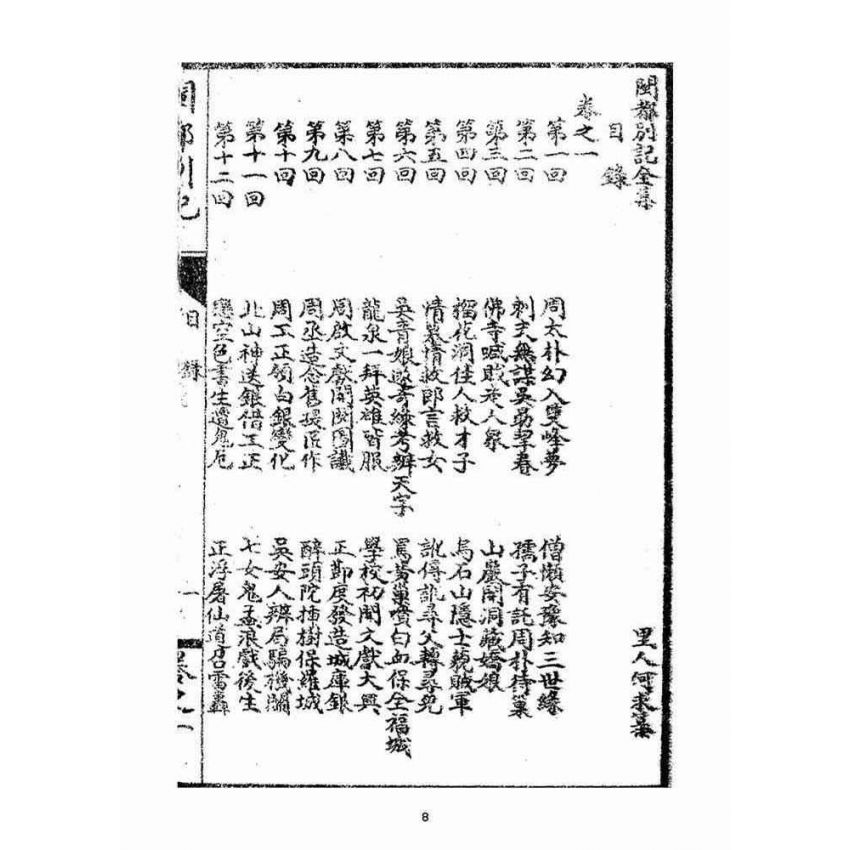 閩都別記全集
里人何求纂
目錄
卷之一
第一回 周太朴幻入雙峰夢 僧懶安豫知三世緣
第二回 刺史無謀吳勗挈春 孺子有託周朴待巢
第三回 佛寺喊賊老人 山巖開洞藏嬌娘
第四回 榴花洞佳人救才子 烏石山隱士 賊軍
第五回 情墓情救郎言救女 訛傳訛尋父轉尋
第六回 吳青娘 奇緣考辨天字 罵黃巢噴白血保全福城
第七回 龍泉一拜英雄皆服 學校初開文獻大興
第八回 周啟文獻開閩圖讖 正勤度發造城庫銀
第九回 周丞造念舊援匠作 醉頭陀插樹保羅城
第十回 周工正領白銀變化 吳安人辨局騙機關
第十一回 北山神送銀借工正 七女鬼孟浪戲後生
第十二回 戀空色書生遭鬼厄 正浮屠仙道召雷轟
閩都別記
目錄
一
卷之一
8